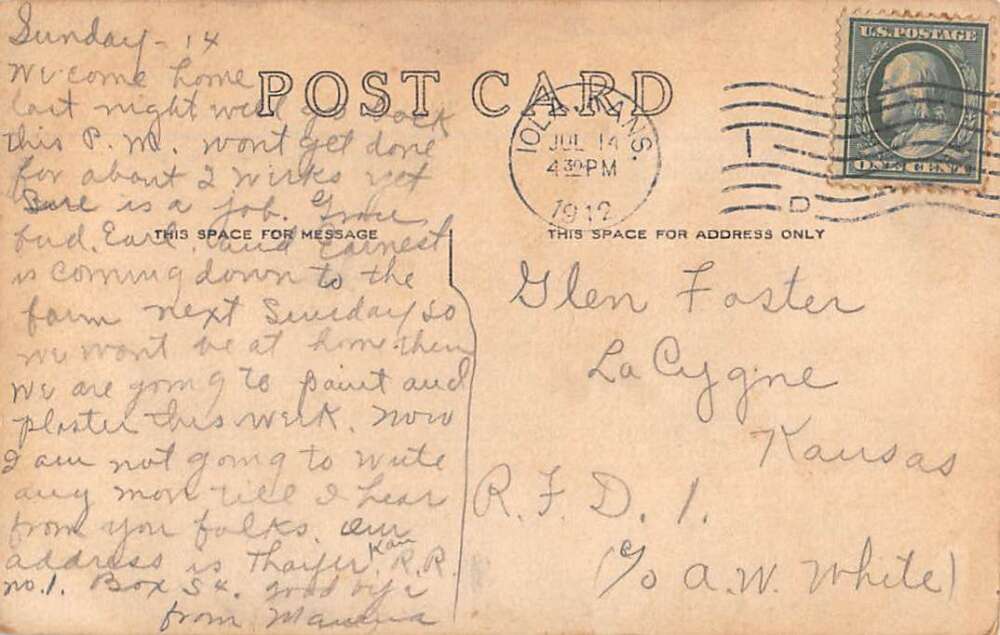 Sunday - 14
We come home
last night will go back
this P.M. wont get done
for about 2 weeks yet
Sure is a job. Grace
bud, Earl, and Earnest
is coming down to the
farm next Sunday so
we wont be at home then
we are going to paint and
plaster this week. Now
I am not going to write
any mor till I hear
from you folks. Our
address is Thayer, Kan R.R.
no. 1. Box 54. good bye
from Mamma
POST CARD
THIS SPACE FOR MESSAGE
THIS SPACE FOR ADDRESS ONLY
IOLA, KANS.
JUL 14
4 30 PM
1912
I
D
U.S. POSTAGE
ONE CENT
Glen Foster
La Cygne
Kansas
R.F.D. 1.
(c/o A.W. White)